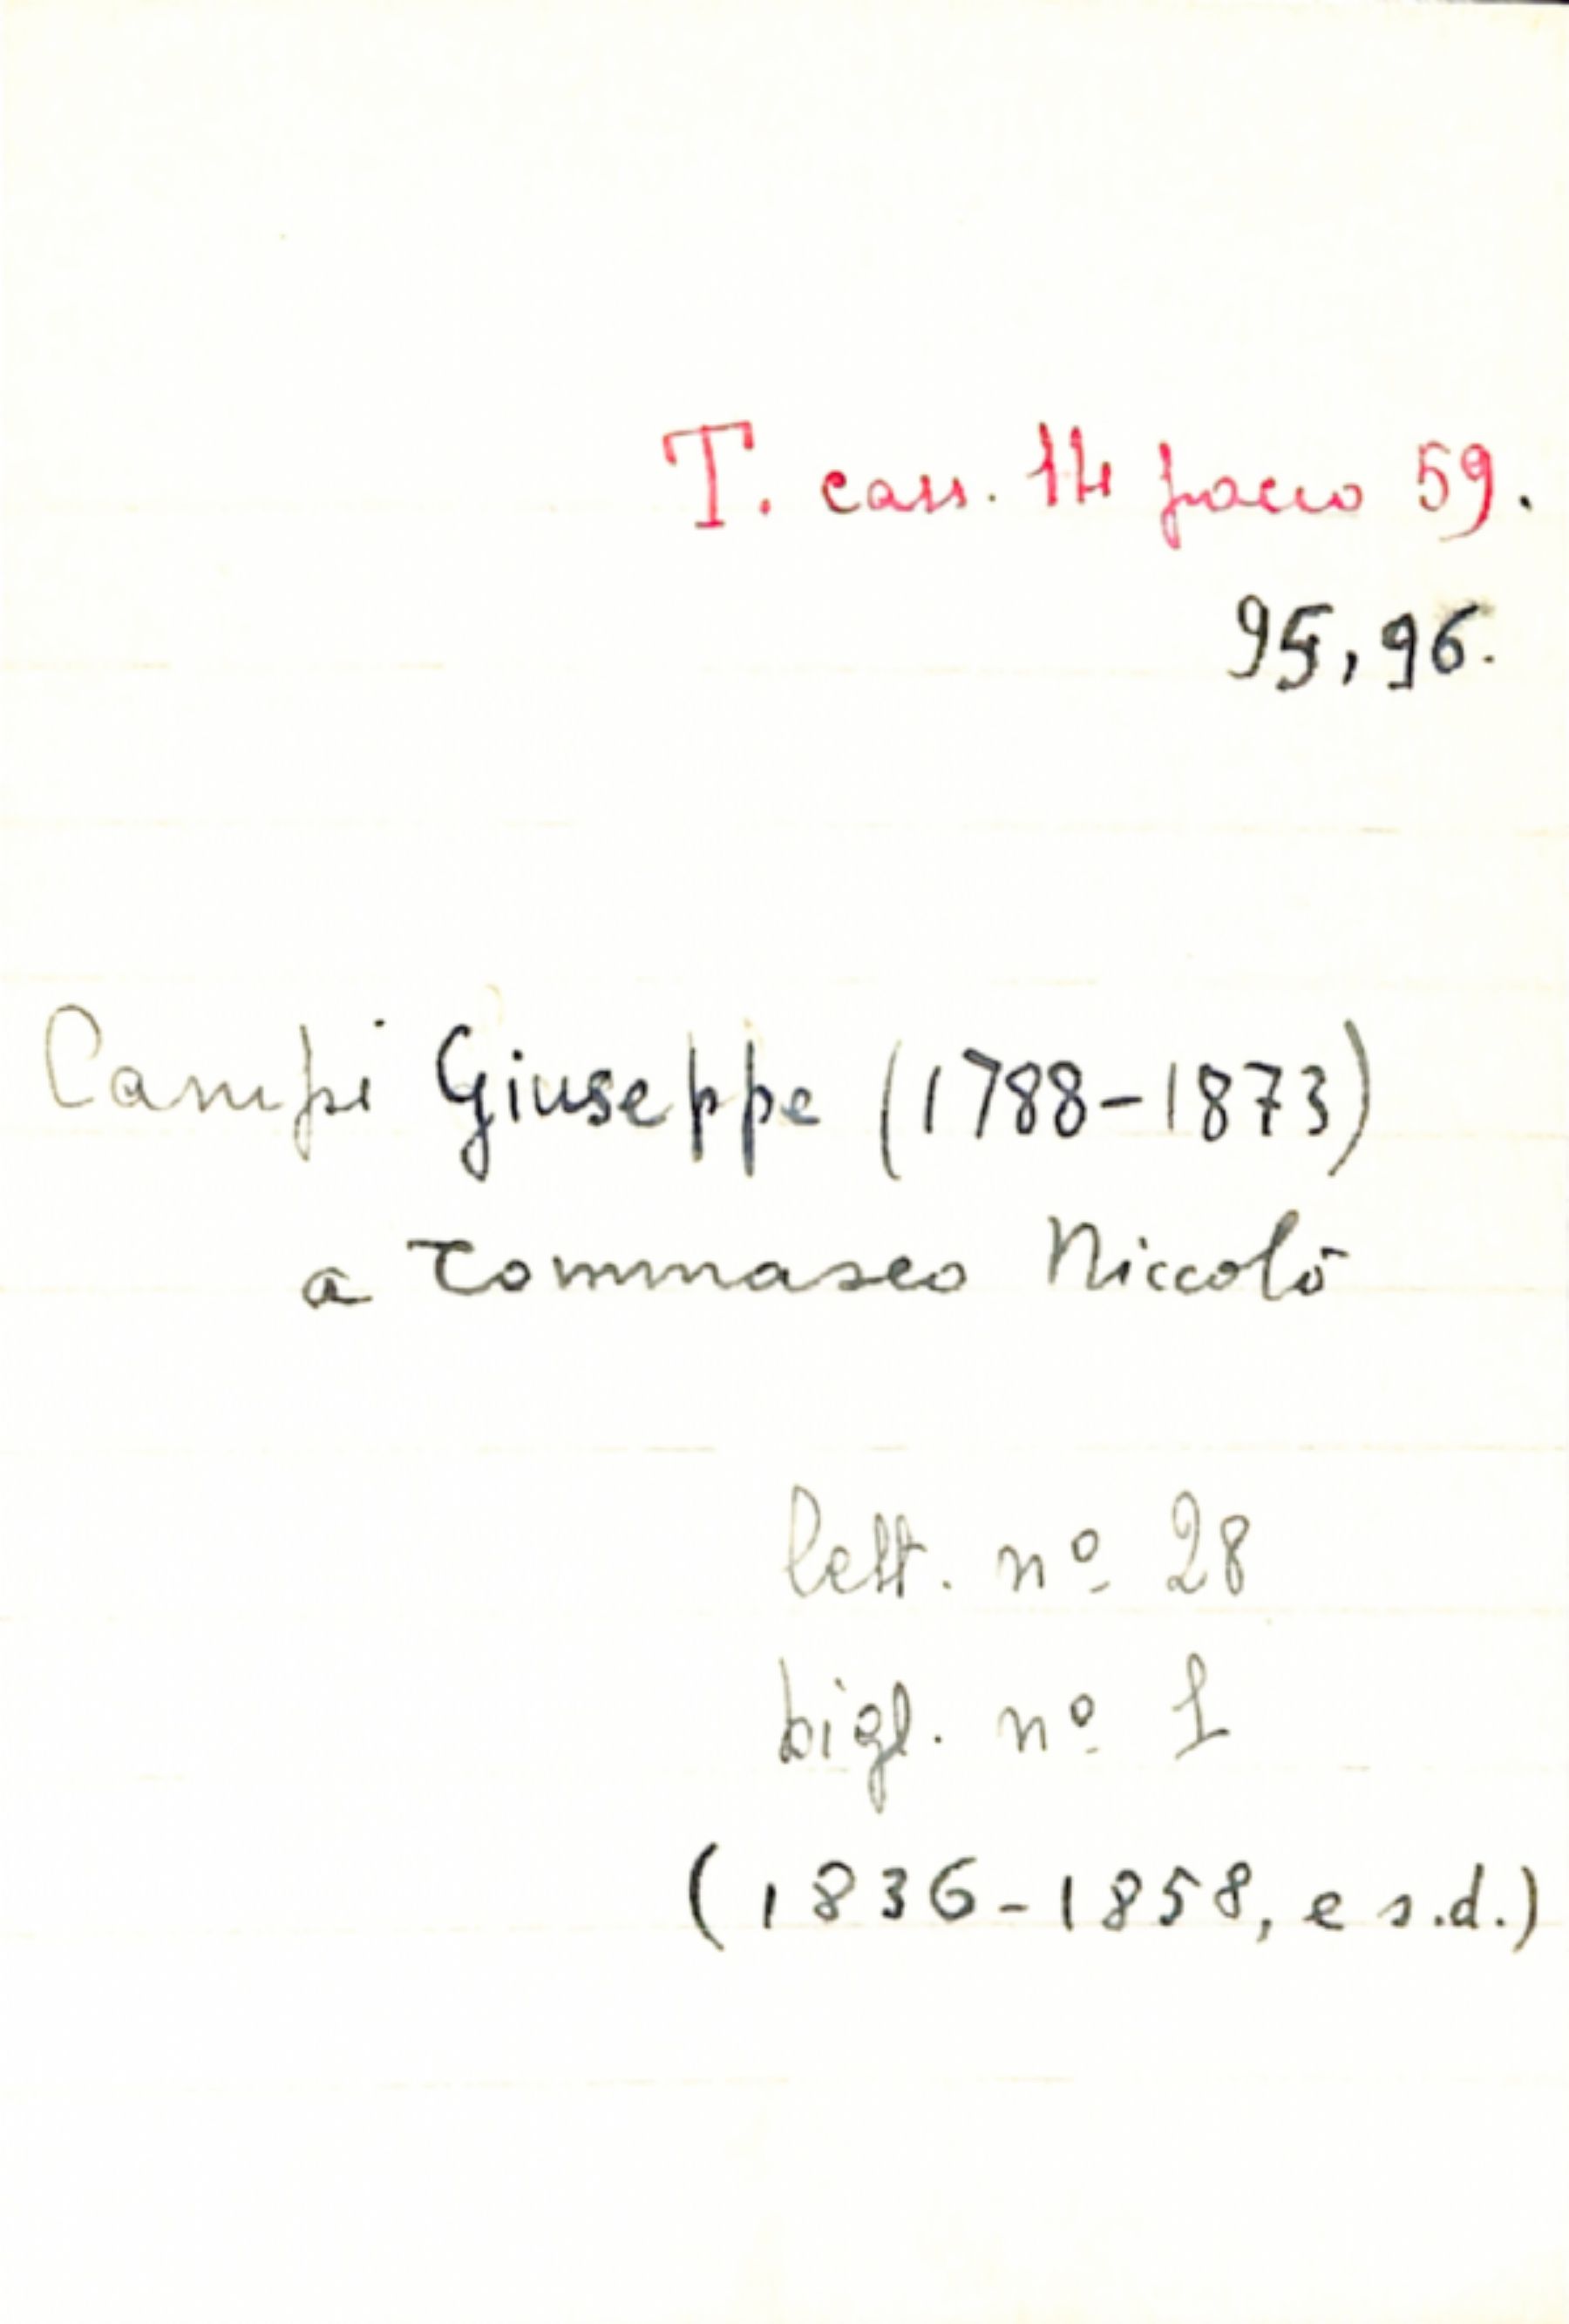 T. cass. 14 pacco 59.
95, 96.
Campi Giuseppe (1788-1873)
a Tommaseo Niccolò
lett. nº 28
bigl. nº 1
(1836-1858, e s.d.)